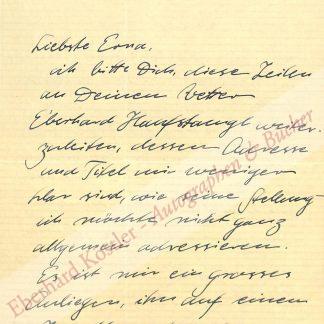 Liebste Erna,
ich bitte Dich, diese Zeilen
an Deinen Vetter
Eberhard Hanfstaengl weiter-
zuleiten, dessen Adresse
und Titel mir weniger
klar sind, wie seine Stellung
ich möchte nicht ganz
allgemein adressieren.
Es ist mir ein grosses
Anliegen, ihn auf einen
Eberhard Köstler - Autographen & Bücher